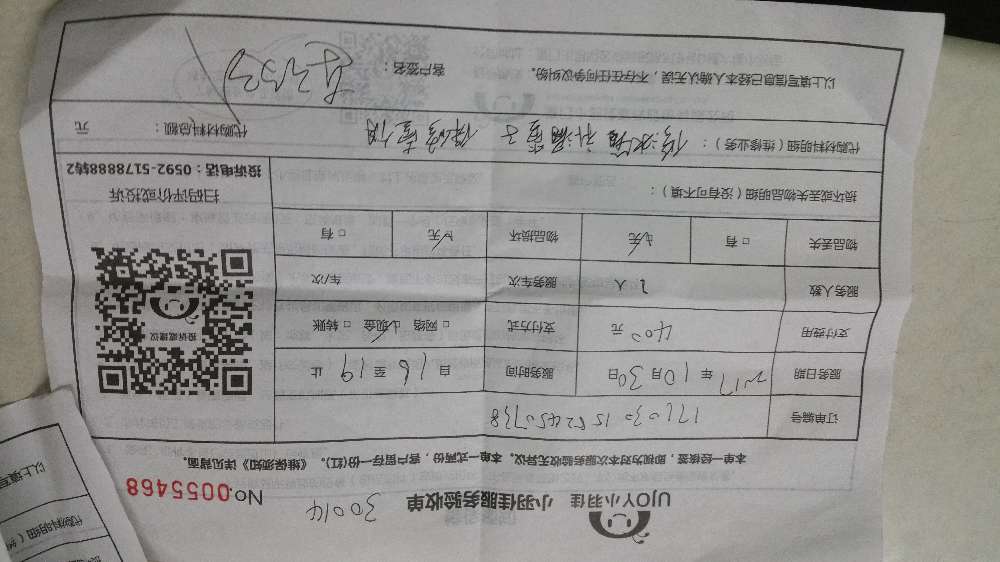 UJOY小羽佳 小羽佳服务验收单
30014
No.0055468
本单一经签核,即视为对本次服务验收无异议。本单一式两份,客户留存一份(红)。《维保须知》详见背面。
订单编号 1710301552450738
服务日期 2017年10月30日 服务时间 自16至19止
支付费用 400元 支付方式 □网络 ☑现金 □转账
服务人数 2人 服务车次 车/次
物品丢失 □有 ☑无 物品损坏 ☑无 □有
损坏或丢失物品明细(没有可不填):
投诉或建议
扫码评价或投诉
投诉电话:0592-5178888转2
代购材料明细(维修业务):
代购材料总额: 元
以上填写信息已经本人确认无误,不存在任何争议纠纷。 客户签名:
以上填写
代购材料明细(